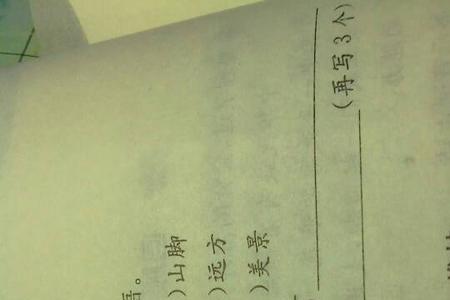 )山脚
)远方
)美景
(再写3个)